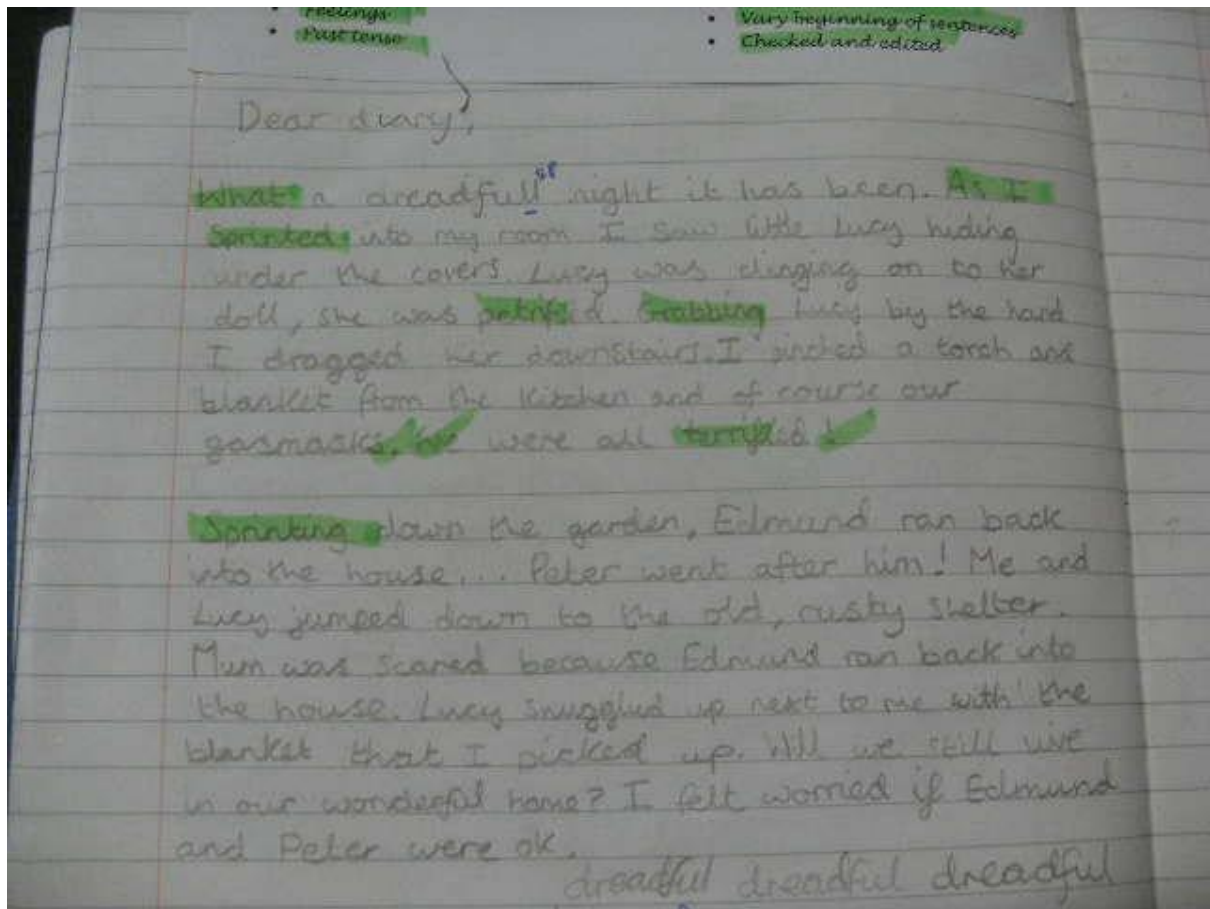 • Feelings
• Past tense
• Vary beginning of sentences
• Checked and edited
Dear diary,
What a dreadfull sp night it has been. As I
Sprinted into my room I saw little Lucy hiding
under the covers. Lucy was clinging on to her
doll, she was petrifeid. Grabbing Lucy by the hand
I dragged her downstairs. I picked a torch and
blanket from the kitchen and of course our
gasmasks. We were all terrified!
Sprinting down the garden, Edmund ran back
into the house... Peter went after him! Me and
Lucy jumped down to the old, rusty shelter.
Mum was scared because Edmund ran back into
the house. Lucy snuggled up next to me with the
blanket that I picked up. Will we still live
in our wonderful home? I felt worried if Edmund
and Peter were ok.
dreadful dreadful dreadful